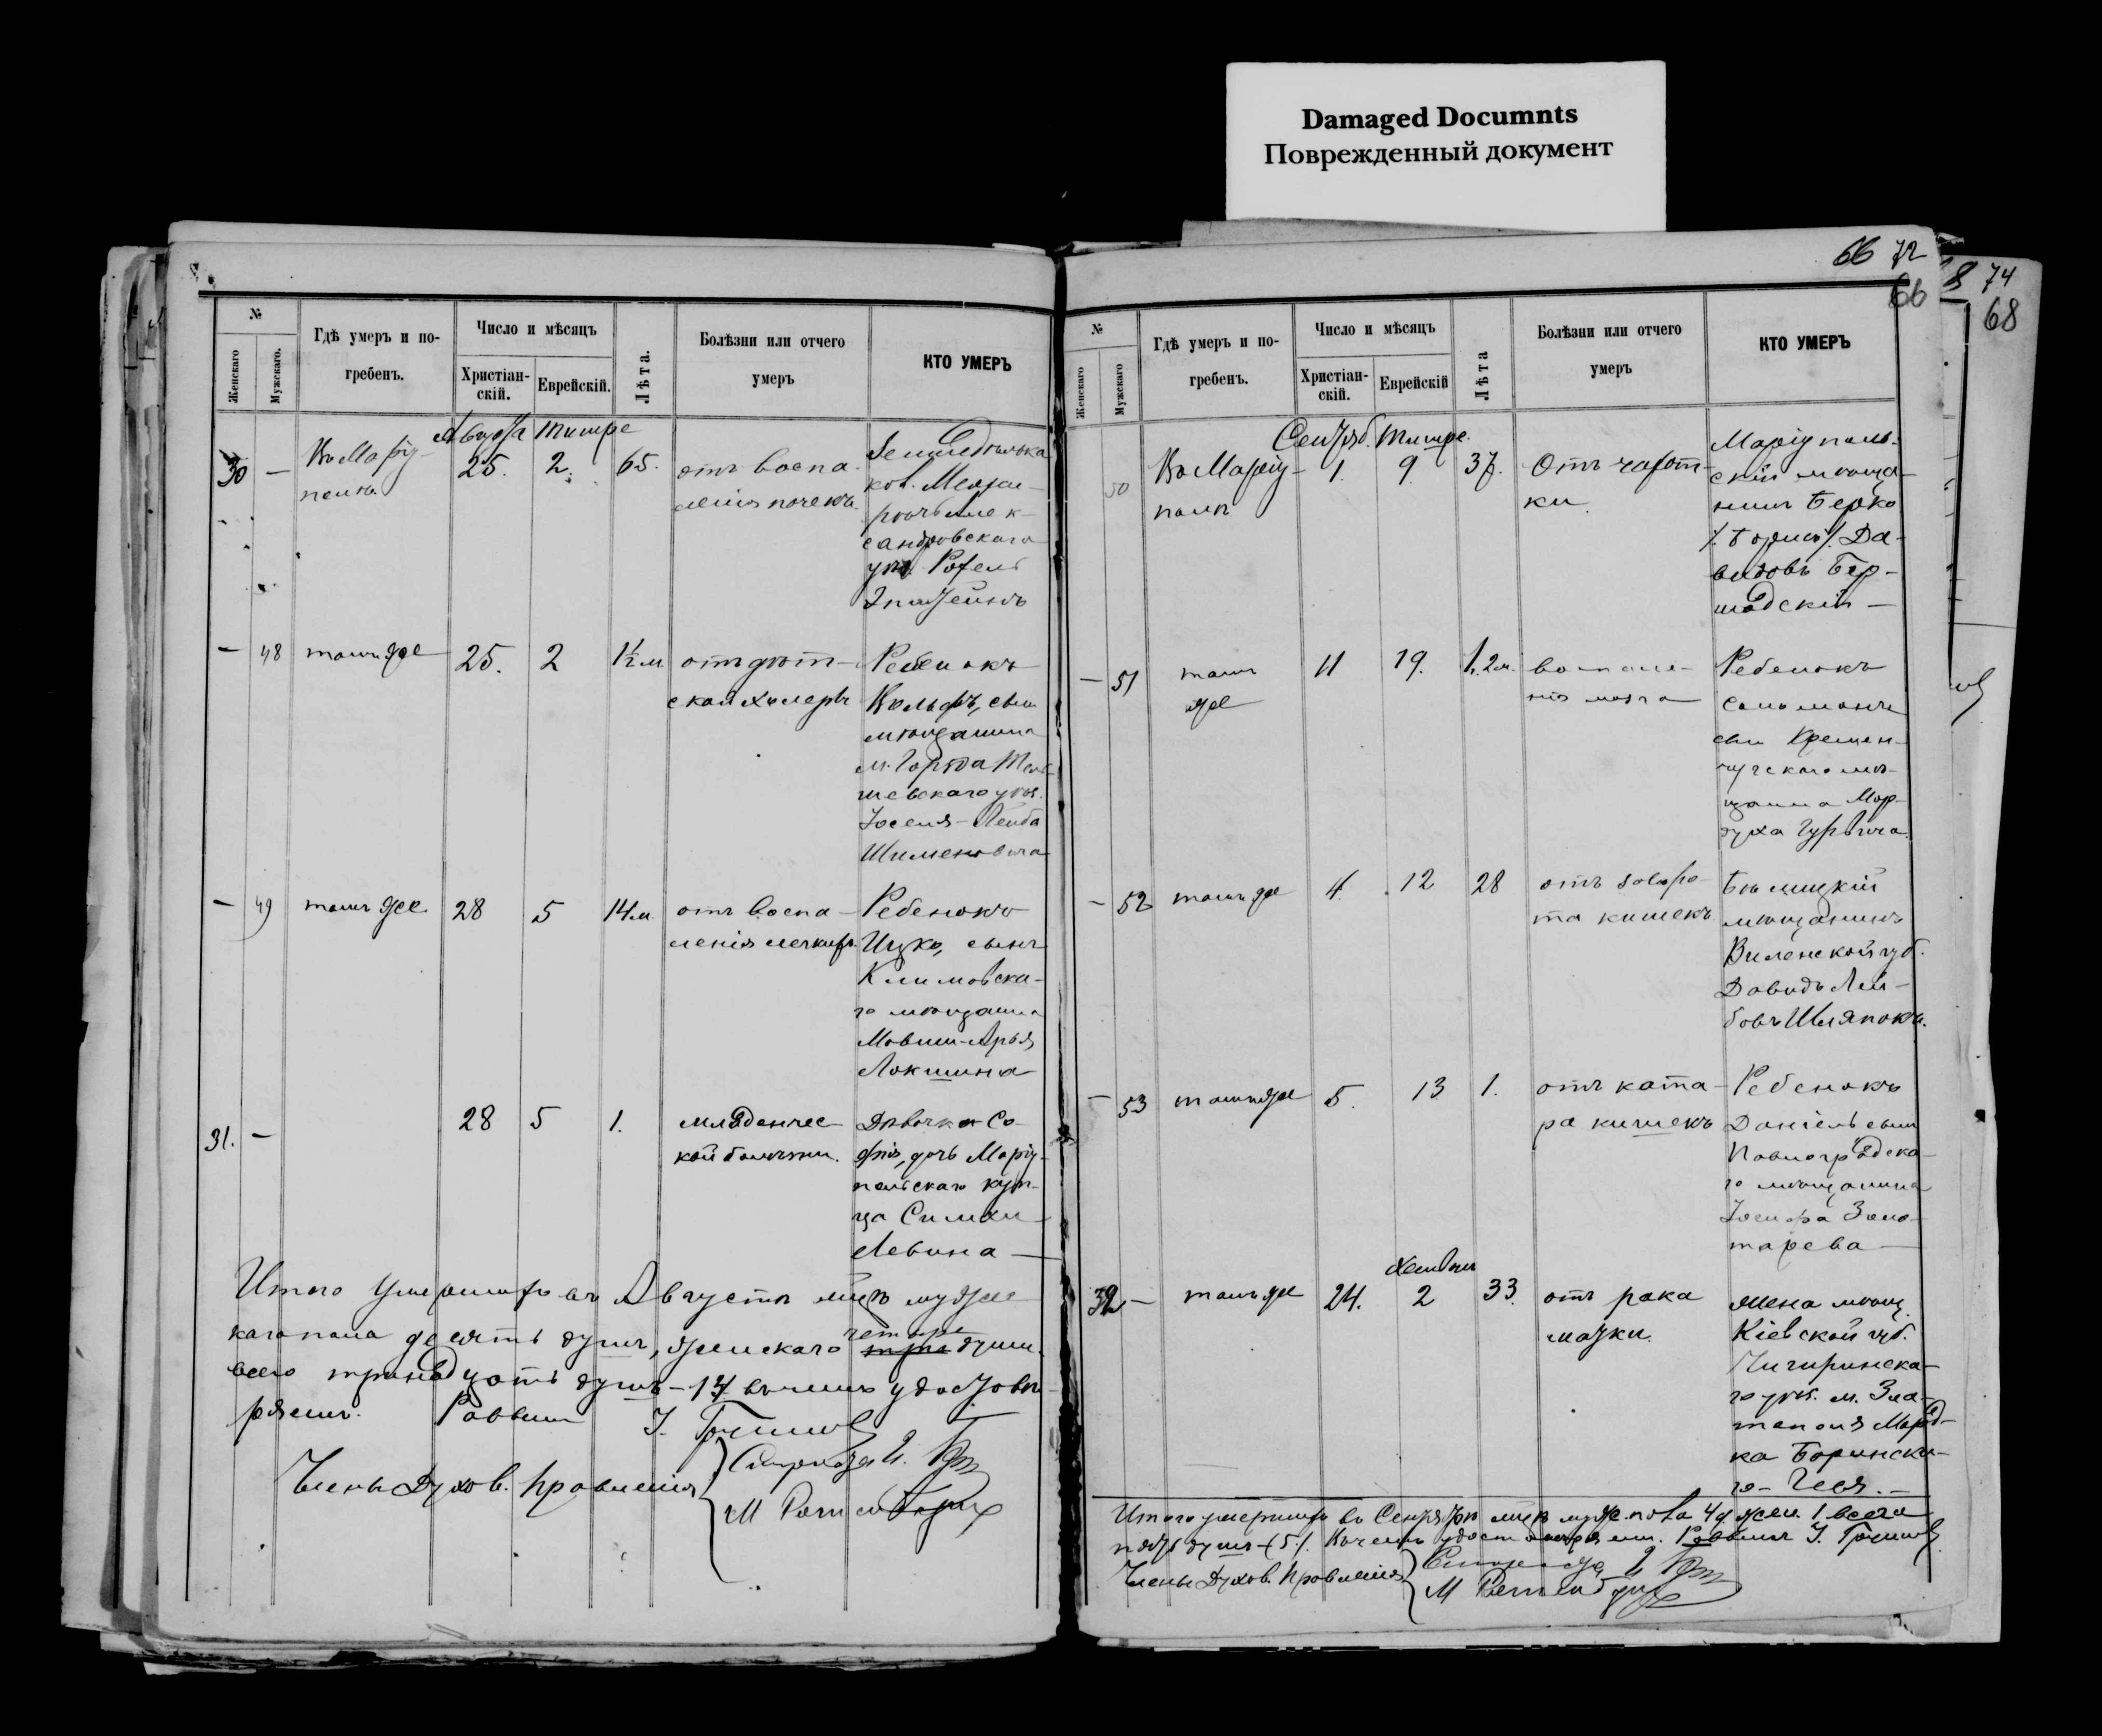 Damaged Documnts
Поврежденный документ
66 72
66
74
68
№
Женскаго
Мужскаго.
Гдѣ умеръ и по-
гребенъ.
Число и мѣсяцъ
Христіан-
скій.
Еврейскій.
Лѣта.
Болѣзни или отчего
умеръ
КТО УМЕРЪ
Августа Тишре
30 — Въ Маріу- 25. 2. 65. отъ воспа-
полѣ
ленія почекъ.
кол.
сандровскаго
уѣз. Рохель
— 48 тамъ же 25. 2 1½ м. отъ дѣт-
ской холеры
Ребенокъ
Вольфъ, сынъ
мѣщанина
м.
шевскаго уѣз.
Іоселя-Лейба
— 49 тамъ же 28 5 14 м. отъ воспа-
ленія легкихъ
Ребенокъ
Ицко, сынъ
Климовска-
го мѣщанина
Мовши-Арья
Локшина
31. — 28 5 1. младенчес-
кой болѣзни.
Дѣвочка Со-
фія, дочь Маріу-
польскаго куп-
ца Симхи
Левина —
Итого умершихъ въ Августѣ мцѣ мужес-
каго пола десять душъ, женскаго
четыре
три души.
всего тринадцать душъ — 14 въ чемъ удостовѣ-
ряемъ. Раввинъ
Члены Духов. Правленія
М
№
Женскаго
Мужскаго
Гдѣ умеръ и по-
гребенъ.
Число и мѣсяцъ
Христіан-
скій.
Еврейскій
Лѣта
Болѣзни или отчего
умеръ
КТО УМЕРЪ
Сентяб. Тишре.
50 Въ Маріу- 1. 9. 37. Отъ чахот-
полѣ
ки.
Маріуполь-
скій мѣща-
нинъ Берко
/: Борисъ :/ Да-
видовъ Бер-
шадскій —
— 51 тамъ
же
11 19. 1. 2 м. воспале-
нія мозга
Ребенокъ
Соломонъ
сынъ Кремен-
чугскаго мѣ-
щанина Мор-
духа Гурвича.
— 52 тамъ же 4. 12 28 отъ заворо-
та кишекъ
мѣщанинъ
Виленской губ.
Давидъ Лей-
бовъ
— 53 тамъ же 5. 13 1. отъ ката-
ра кишекъ
Ребенокъ
Даніель сынъ
Павлоградска-
го мѣщанина
Золо-
тарева —
Хешвон
32 — тамъ же 24. 2 33. отъ рака
матки.
Жена мѣщ.
Кіевской губ.
Чигиринска-
го уѣз. м. Зла-
тополя Морд-
ка Боринска-
го —
Итого умершихъ въ Сентябрѣ мцѣ муж. пола 4 ж. жен. 1 всего
пять душъ (5). Въ чемъ удостовѣряемъ. Раввинъ
Члены Духов. Правленія
М